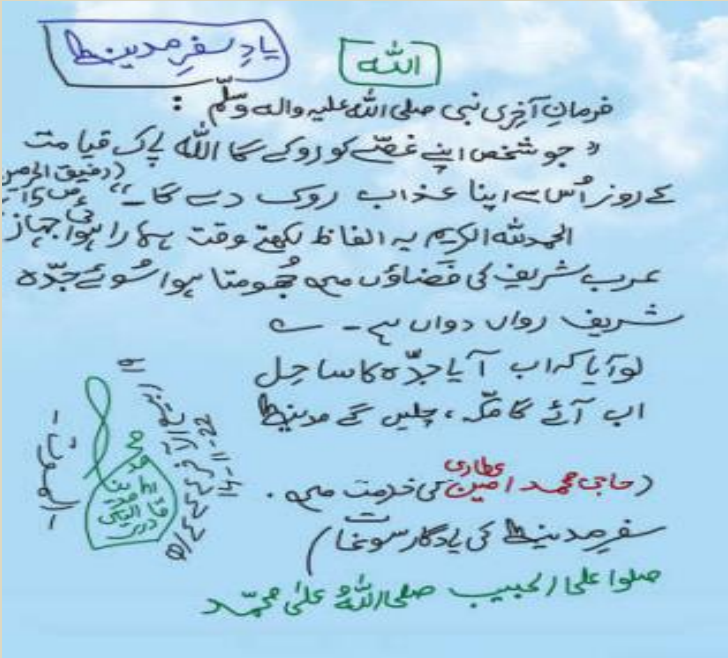 یادِ سفرِ مدینہ
اللہ
فرمانِ آخِری نبی صلی اللہ علیہ والہ وسلَّم :
"جو شخص اپنے غصّے کو روکے گا اللہ پاک قیامت
کے روز اُس سے اپنا عذاب روک دے گا۔" (رفیق الحرمین
الحمدللہ الکریم یہ الفاظ لکھتے وقت ہمارا ہوائی جہاز
عرب شریف کی فَضاؤں میں جُھومتا ہوا سُوئے جدّہ
شریف رواں دواں ہے۔
لو آیا کہ اب آیا جدّہ کا ساحِل
اب آئے گا مکّہ، چلیں گے مدینہ
(حاجی محمد امین عطاری کی خدمت میں
سفرِ مدینہ کی یادگار سوغات)
صلوا علی الحبیب صلی اللہُ علیٰ محمّد
۔الموت۔
محمد
الیاس
قادری